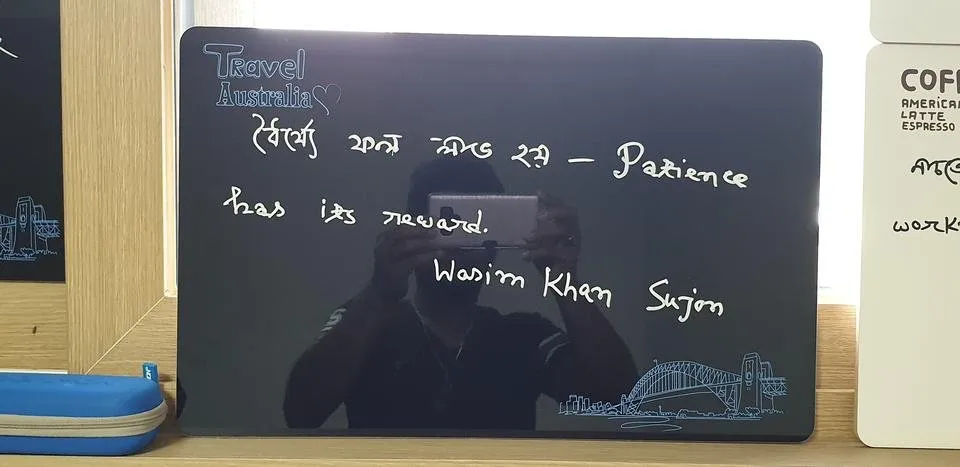 Travel
Australia
ধৈর্য্যে ফল লাভ হয় – Patience
has its reward.
Wasim Khan Sujon
COF
AMERICA
LATTE
ESPRESSO
work